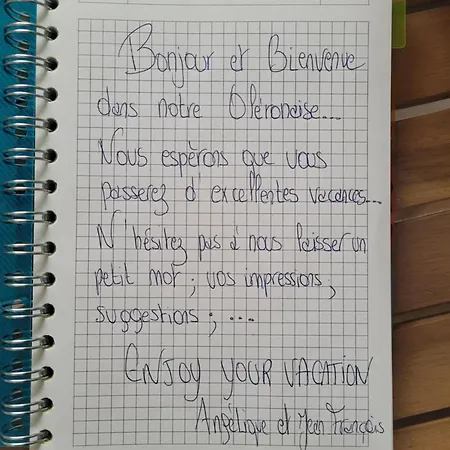 Bonjour et Bienvenue
dans notre Oléronaise...
Nous espèrons que vous
passerez d'excellentes vacances...
N'hésitez pas à nous laisser un
petit mot ; vos impressions,
suggestions ; ...
ENJOY YOUR VACATION
Angélique et Jean François